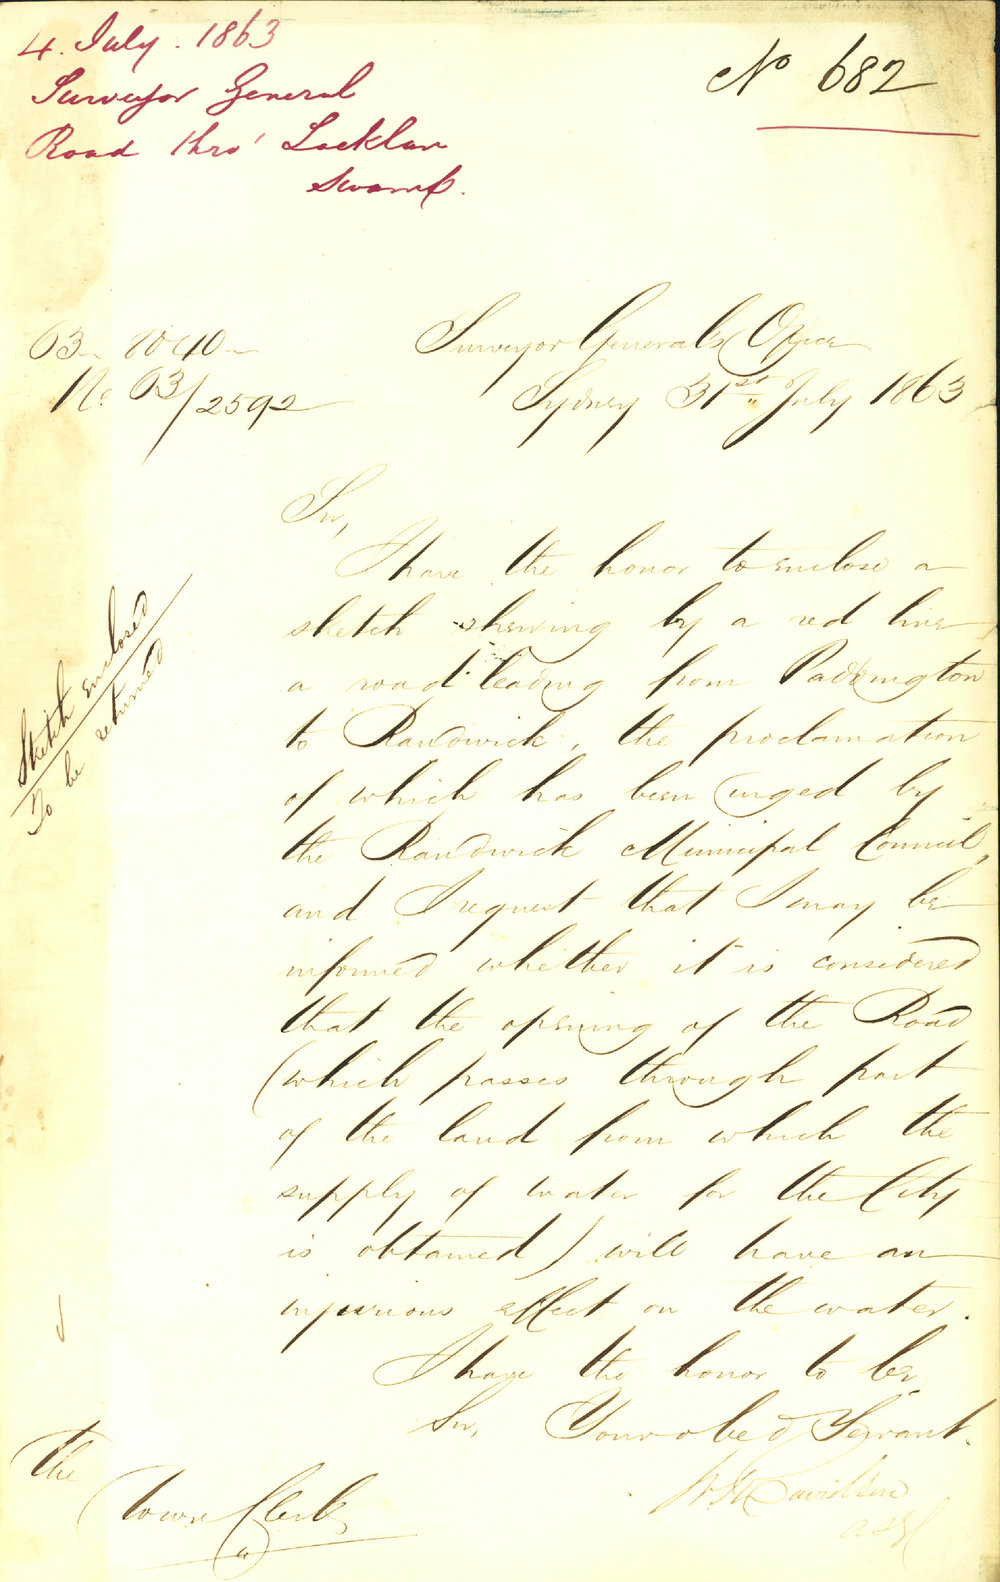 4. July. 1863
Surveyor General
Road thro' Lachlan
Swamp.
No 682
63- 8040-
No. 63/2592
Surveyor General's Office
Sydney 31st July 1863
Sir,
I have the honor to enclose a
sketch shewing by a red line
a road leading from Paddington
to Randwick, the proclamation
of which has been urged by
the Randwick Municipal Council,
and I request that I may be
informed whether it is considered
that the opening of the Road
(which passes through part
of the land from which the
supply of water for the City
is obtained) will have an
injurious effect on the water.
I have the honor to be
Sir, Your obed Servant.
W M Davidson
ASG
Sketch enclosed
To be returned
The
Town Clerk